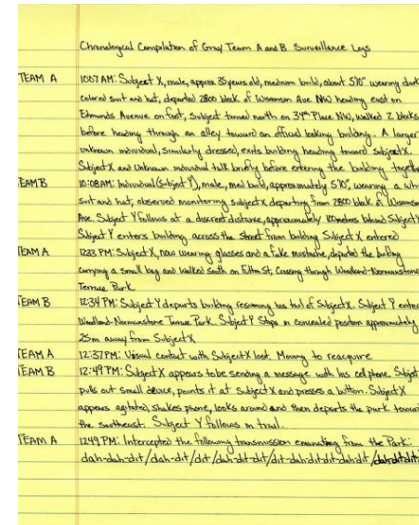 Chronological Compilation of Gray Team A and B Surveillance Logs
TEAM A 10:07 AM: Subject X, male, approx 35 years old, medium build, about 5'10" wearing dark
colored suit and hat, departed 2800 block of Wisconsin Ave NW heading east on
Edmunds Avenue on foot, subject turned north on 37th Place NW, walked 2 blocks
before heading through an alley toward an official looking building. A larger
unknown individual, similarly dressed, exits building heading toward subject X.
Subject X and unknown individual talk briefly before entering the building together
TEAM B 10:08AM: Individual (Subject Y), male, med build, approximately 5'10", wearing a
suit and hat, observed monitoring subject X departing from 2800 block of Wisconsin
Ave. Subject Y follows at a discreet distance, approximately 100meters behind Subject X
Subject Y enters building across the street from building Subject X entered
TEAM A 12:33 PM: Subject X, now wearing glasses and a fake mustache, departed the building
carrying a small bag and walked south on Fulton St, Crossing through Woodland-Normanstone
Terrace Park
TEAM B 12:34 PM: Subject Y departs building resuming his tail of Subject X. Subject Y enters
Woodland-Normanstone Terrace Park. Subject Y Stops in concealed position approximately
25m away from Subject X
TEAM A 12:37PM: Visual contact with Subject X lost. Moving to reacquire
TEAM B 12:49PM: Subject X appears to be sending a message with his cell phone. Subject
pulls out small device, points it at Subject X and presses a button. Subject X
appears agitated, shakes phone, looks around and then departs the park toward
the southeast. Subject Y follows in trail.
TEAM A 12:49 PM: Intercepted the following transmission emanating from the Park:
dah-dah-dit/dah-dit/dit/dah-dit-dit/dit-dah-dit-dit-dah-dit/